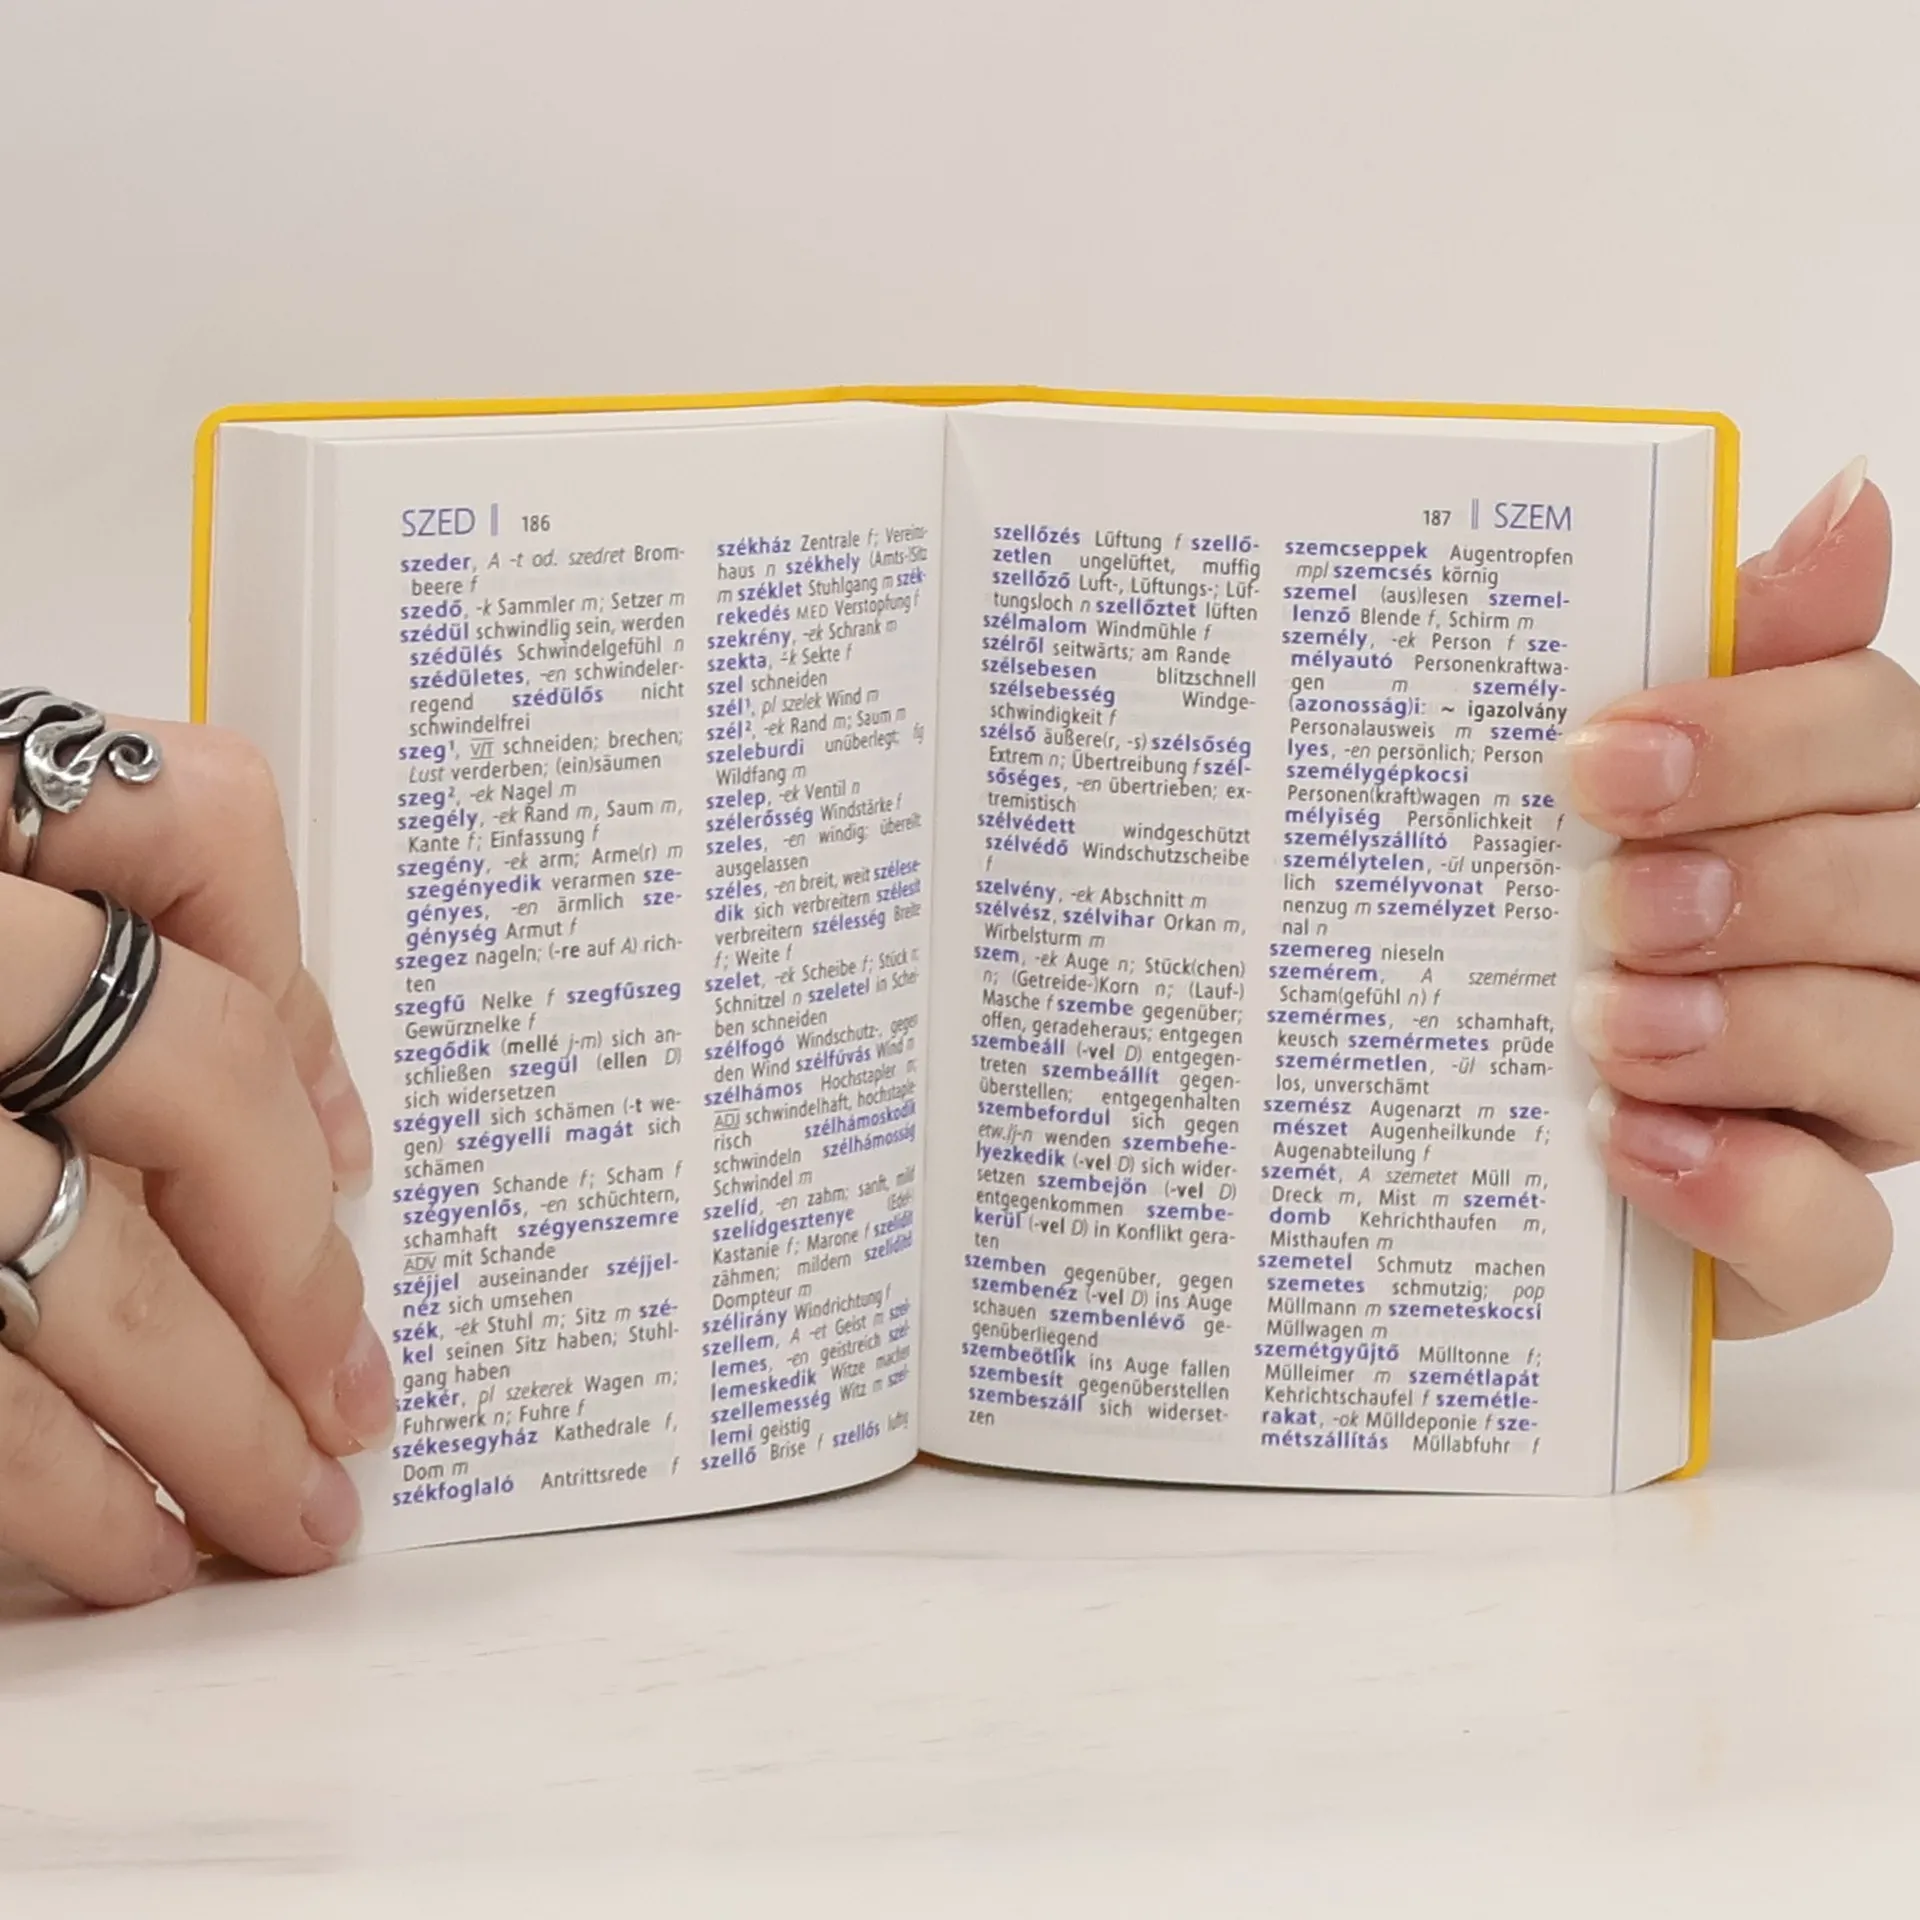 SZED 186
szeder, A -t od. szedret Brom-
beere f
szedő, -k Sammler m; Setzer m
szédül schwindlig sein, werden
szédülés Schwindelgefühl n
szédületes, -en schwindeler-
regend szédülős nicht
schwindelfrei
szeg¹, V/T schneiden; brechen;
Lust verderben; (ein)säumen
szeg², -ek Nagel m
szegély, -ek Rand m, Saum m,
Kante f; Einfassung f
szegény, -ek arm; Arme(r) m
szegényedik verarmen sze-
gényes, -en ärmlich sze-
génység Armut f
szegez nageln; (-re auf A) rich-
ten
szegfű Nelke f szegfűszeg
Gewürznelke f
szegődik (mellé j-m) sich an-
schließen szegül (ellen D)
sich widersetzen
szégyell sich schämen (-t we-
gen) szégyelli magát sich
schämen
szégyen Schande f; Scham f
szégyenlős, -en schüchtern,
schamhaft szégyenszemre
ADV mit Schande
széjjel auseinander széjjel-
néz sich umsehen
szék, -ek Stuhl m; Sitz m szé-
kel seinen Sitz haben; Stuhl-
gang haben
szekér, pl szekerek Wagen m;
Fuhrwerk n; Fuhre f
székesegyház Kathedrale f,
Dom m
székfoglaló Antrittsrede f
székház Zentrale f; Vereins-
haus n székhely (Amts-)Sitz
m széklet Stuhlgang m szék-
rekedés MED Verstopfung f
szekrény, -ek Schrank m
szekta, -´k Sekte f
szel schneiden
szél¹, pl szelek Wind m
szél², -ek Rand m; Saum m
szeleburdi unüberlegt; fig
Wildfang m
szelep, -ek Ventil n
szélerősség Windstärke f
szeles, -en windig; übereilt
ausgelassen
széles, -en breit, weit szélese-
dik sich verbreitern szélesít
verbreitern szélesség Breite
f; Weite f
szelet, -ek Scheibe f; Stück n;
Schnitzel n szeletel in Schei-
ben schneiden
szélfogó Windschutz-, gegen
den Wind szélfúvás Wind m
szélhámos Hochstapler m;
ADJ schwindelhaft, hochstaple-
risch szélhámoskodik
schwindeln szélhámosság
Schwindel m
szelíd, -en zahm; sanft, mild
szelídgesztenye (Edel-)
Kastanie f; Marone f szelídít
zähmen; mildern szelídítő
Dompteur m
szélirány Windrichtung f
szellem, A -et Geist m szel-
lemes, -en geistreich szel-
lemeskedik Witze machen
szellemesség Witz m szel-
lemi geistig
szellő Brise f szellős luftig
187 SZEM
szellőzés Lüftung f szellő-
zetlen ungelüftet, muffig
szellőző Luft-, Lüftungs-; Lüf-
tungsloch n szellőztet lüften
szélmalom Windmühle f
szélről seitwärts; am Rande
szélsebesen blitzschnell
szélsebesség Windge-
schwindigkeit f
szélső äußere(r, -s) szélsőség
Extrem n; Übertreibung f szél-
sőséges, -en übertrieben; ex-
tremistisch
szélvédett windgeschützt
szélvédő Windschutzscheibe
f
szelvény, -ek Abschnitt m
szélvész, szélvihar Orkan m,
Wirbelsturm m
szem, -ek Auge n; Stück(chen)
n; (Getreide-)Korn n; (Lauf-)
Masche f szembe gegenüber;
offen, geradeheraus; entgegen
szembeáll (-vel D) entgegen-
treten szembeállít gegen-
überstellen; entgegenhalten
szembefordul sich gegen
etw./j-n wenden szembehe-
lyezkedik (-vel D) sich wider-
setzen szembejön (-vel D)
entgegenkommen szembe-
kerül (-vel D) in Konflikt gera-
ten
szemben gegenüber, gegen
szembenéz (-vel D) ins Auge
schauen szembenlévő ge-
genüberliegend
szembeötlik ins Auge fallen
szembesít gegenüberstellen
szembeszáll sich widerset-
zen
szemcseppek Augentropfen
mpl szemcsés körnig
szemel (aus)lesen szemel-
lenző Blende f, Schirm m
személy, -ek Person f sze-
mélyautó Personenkraftwa-
gen m személy-
(azonosság)i: ~ igazolvány
Personalausweis m szemé-
lyes, -en persönlich; Person
személygépkocsi
Personen(kraft)wagen m sze
mélyiség Persönlichkeit f
személyszállító Passagier-
személytelen, -ül unpersön-
lich személyvonat Perso-
nenzug m személyzet Perso-
nal n
szemereg nieseln
szemérem, A szemérmet
Scham(gefühl n) f
szemérmes, -en schamhaft,
keusch szemérmetes prüde
szemérmetlen, -ül scham-
los, unverschämt
szemész Augenarzt m sze-
mészet Augenheilkunde f;
Augenabteilung f
szemét, A szemetet Müll m,
Dreck m, Mist m szemét-
domb Kehrichthaufen m,
Misthaufen m
szemetel Schmutz machen
szemetes schmutzig; pop
Müllmann m szemeteskocsi
Müllwagen m
szemétgyűjtő Mülltonne f;
Mülleimer m szemétlapát
Kehrichtschaufel f szemétle-
rakat, -ok Mülldeponie f sze-
métszállítás Müllabfuhr f